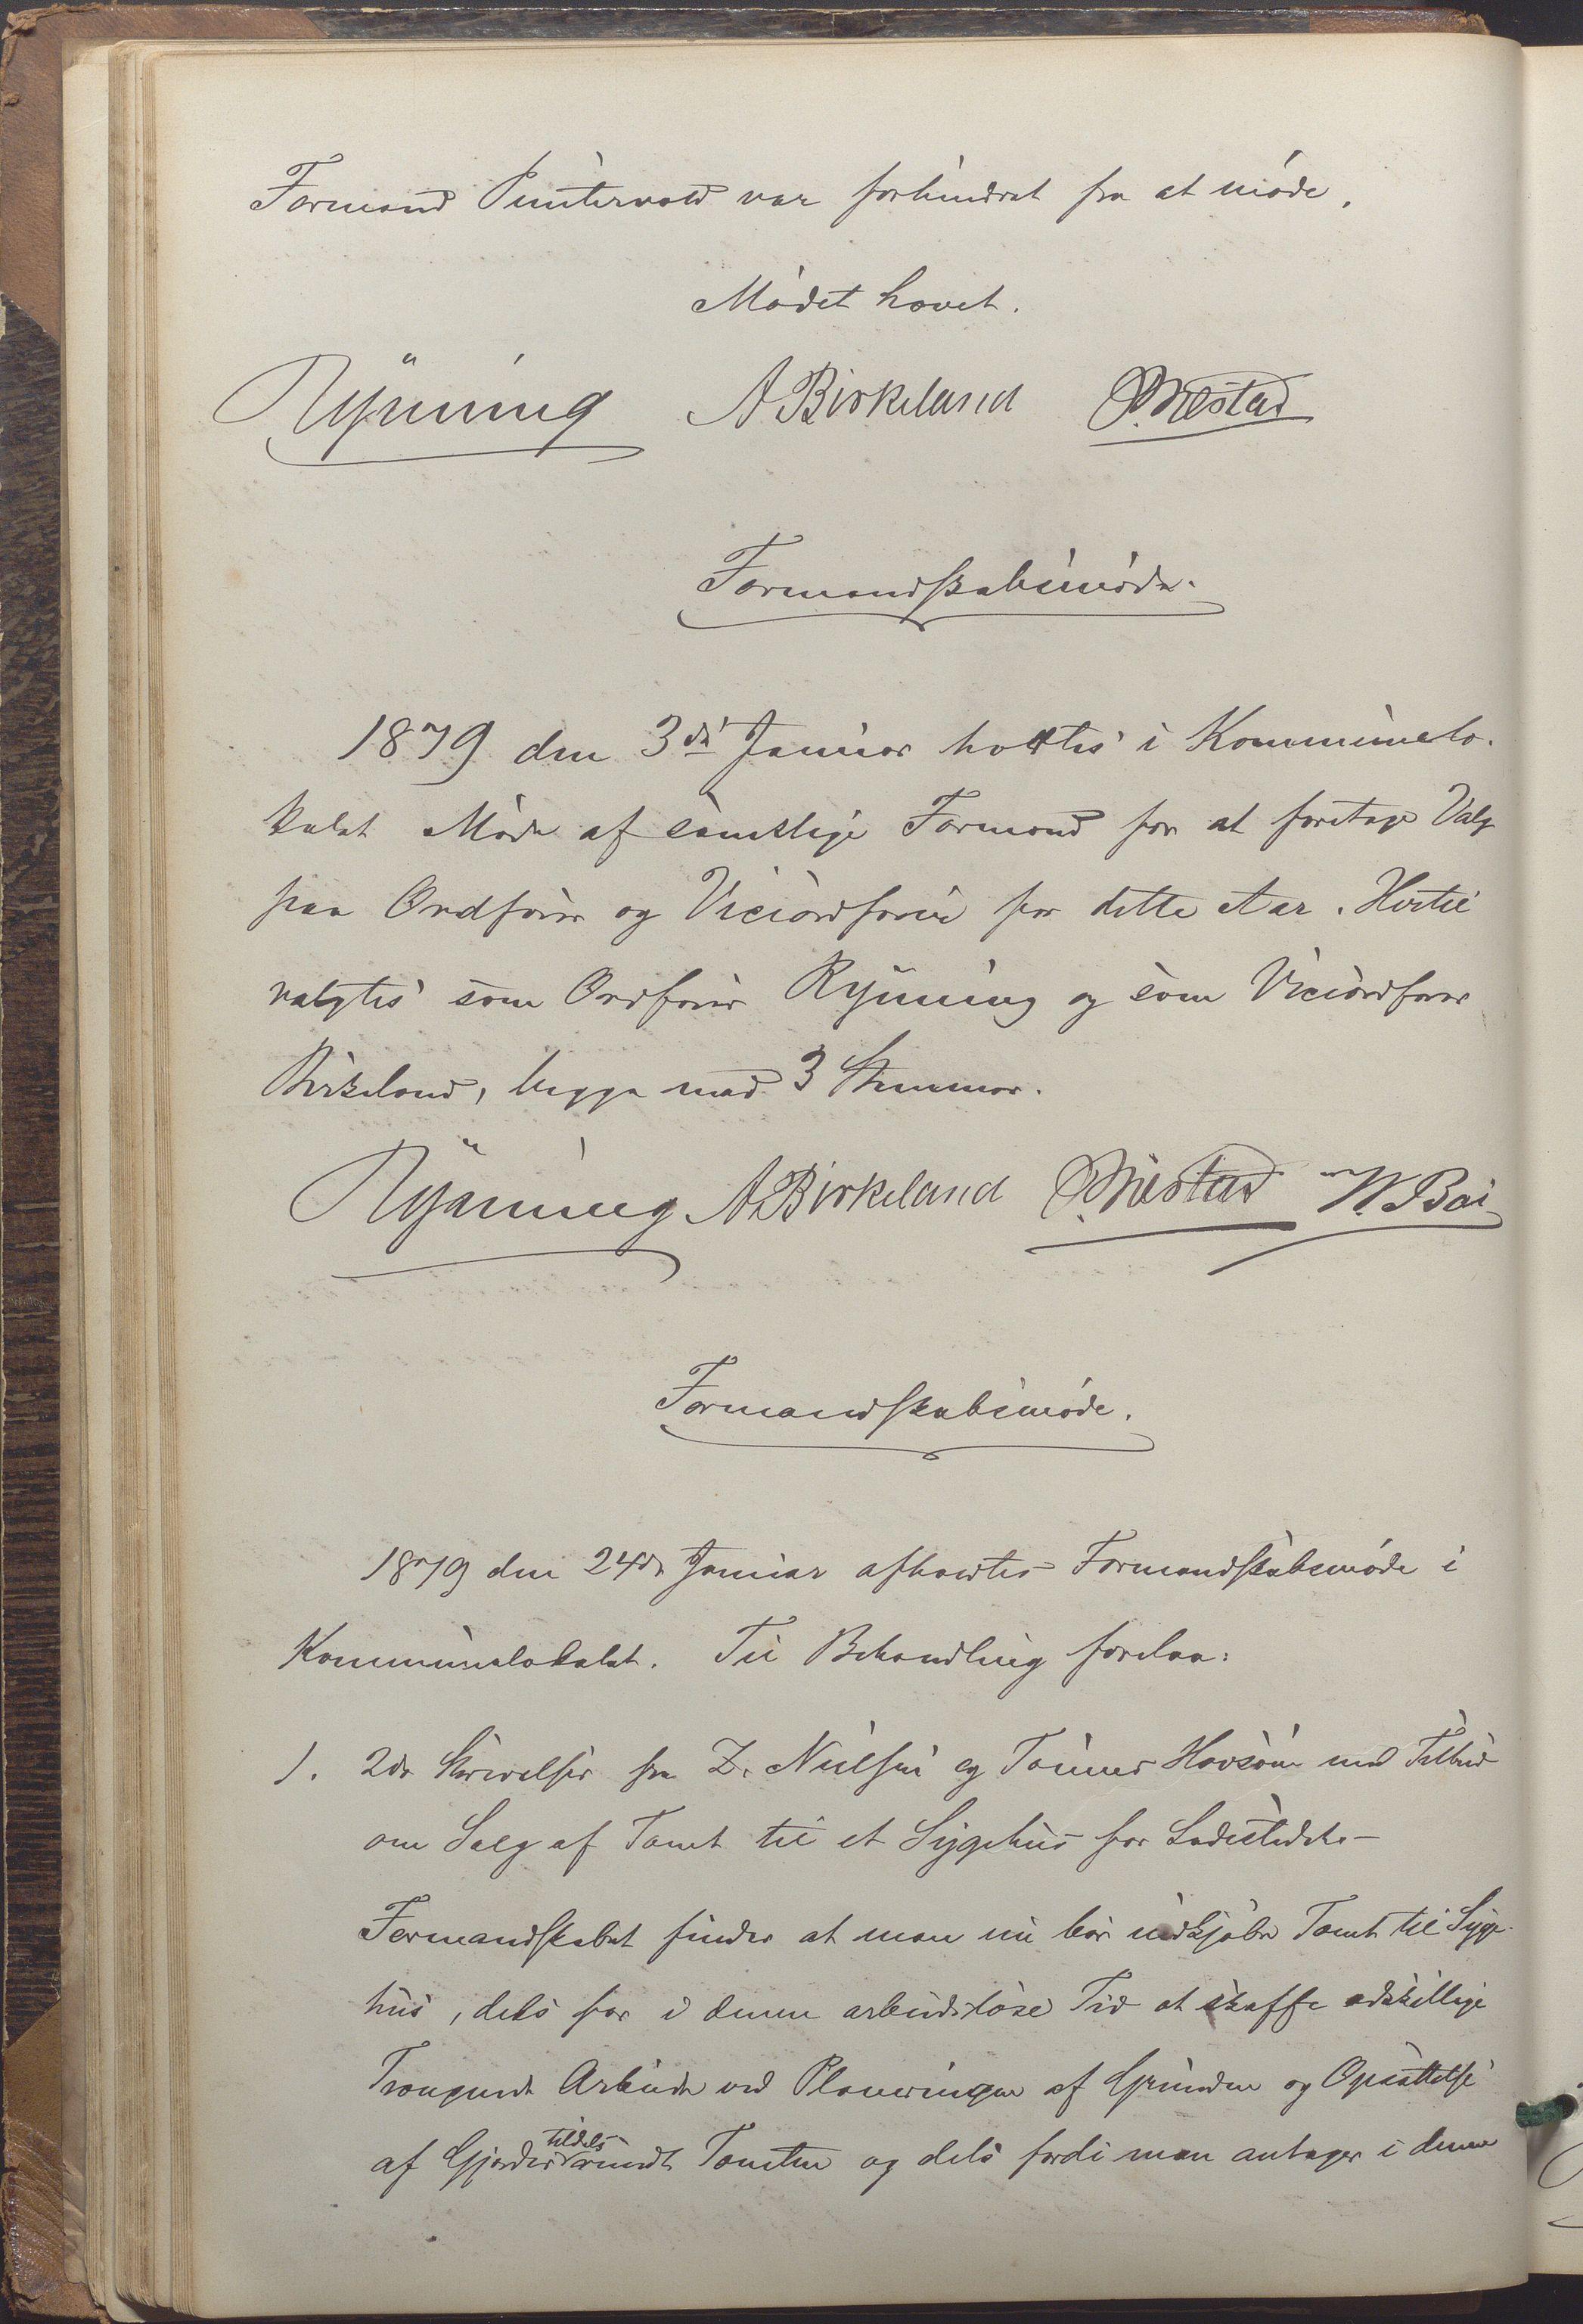 Formand Puntervold var forhindret fra at møde.
Mødet hævet.
Rynning A Birkeland Mestad
Formandskabsmøde.
1879 den 3die Januar holdtes i Kommunelo-
kalet Møde af samtlige Formænd for at foretage Valg
paa Ordfører og Viceordfører for dette Aar. Hertil
valgtes som Ordfører Rynning og som Viceordfører
Birkeland, begge med 3 Stemmer.
Rynning A Birkeland Mestad W. Boi
Formandskabsmøde.
1879 den 24de Januar afholdtes Formandskabsmøde i
Kommunelokalet. Til Behandling forelaa:
1. 2de Skrivelser fra Z. Nielsen og Tønnes Havsøm med Tilbud
om Salg af Tomt til et Sygehus for Ladestedet.-
Formandskabet finder at man nu bør indkjøbe Tomt til Syge-
hus, dels for i denne arbeidsløse Tid at skaffe adskillige
Trængende Arbeide ved Planeringen af Grunden og Opsættelse
af Gjerder tildels rundt Tomten og dels fordi man antager i denne